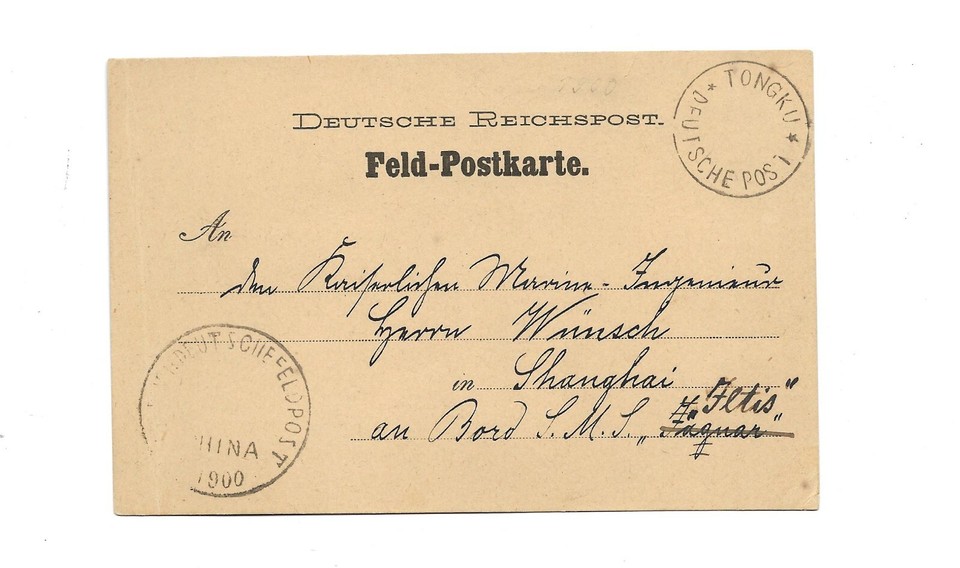 DEUTSCHE REICHSPOST.
Feld-Postkarte.
* TONGKU *
DEUTSCHE POST
An
den Kaiserlichen Marine-Ingenieur
Herrn Wünsch
in Shanghai
an Bord S. M. S. „Jaguar“
„Iltis“
DEUTSCHE FELDPOST
HINA
1900